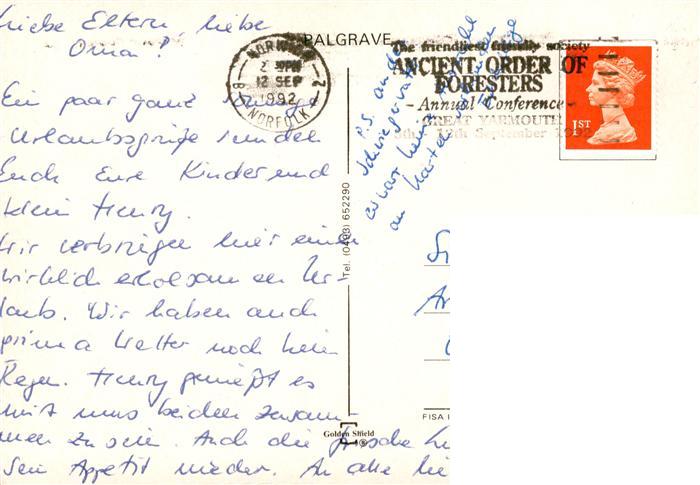 Liebe Eltern, liebe
Oma!
Ein paar ganz sonnige
Urlaubsgrüße senden
Euch Eure Kinder und
klein Henry.
Wir verbringen hier einen
wirklich erholsamen Ur-
laub. Wir haben auch
prima Wetter noch kein
Regen. Henry genießt es
mit uns beiden zusam-
men zu sein. Auch die frische
sein Appetit wieder. An alle
PALGRAVE
NORWICH
12 SEP
1992
NORFOLK
2
The friendliest friendly society
ANCIENT ORDER OF
FORESTERS
- Annual Conference -
GREAT YARMOUTH
12th September 1992
1ST
P.S. an die
Schwiegermutter
es war keine
an Karte
Tel. (0493) 652290
FISA
Golden Shield